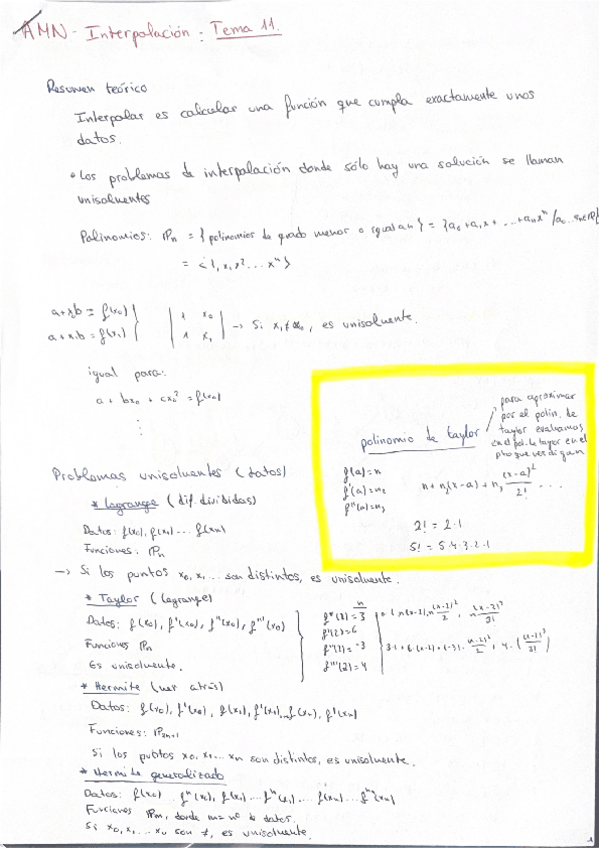 AMN - Interpolación: Tema 11.
Resumen teórico
Interpolar es calcular una función que cumpla exactamente unos
datos.
• Los problemas de interpolación donde sólo hay una solución se llaman
unisolventes
Polinomios: ℙn = { polinomios de grado menor o igual a n } = { a₀ + a₁x + ... + aₙxⁿ / a₀...aₙ ∈ ℝ }
= < 1, x, x² ... xⁿ >
a + x₀b = f(x₀)
a + x₁b = f(x₁)
| 1 x₀ |
| 1 x₁ |
→ Si x₁ ≠ x₀, es unisolvente.
igual para:
a + bx₀ + cx₀² = f(x₀)
⋮
polinomio de taylor
para aproximar
por el polin. de
taylor evaluamos
en el pol. de taylor en el
pto que nos digan
f(a) = n
f'(a) = n₂
f''(a) = n₃
n + n₂(x-a) + n₃ (x-a)²/2! ...
2! = 2·1
5! = 5·4·3·2·1
Problemas unisolventes (datos)
* Lagrange (dif. divididas)
Datos: f(x₀), f(x₁) ... f(xₙ)
Funciones: ℙn
→ Si los puntos x₀, x₁ ... son distintos, es unisolvente.
* Taylor (Lagrange)
Datos: f(x₀), f'(x₀), f''(x₀), f'''(x₀)
Funciones ℙn
Es unisolvente.
n
f(2) = 3
f'(2) = 6
f''(2) = -3
f'''(2) = 4
3·1 + 6·(x-2) + (-3)· (x-2)²/2 + 4·
* Hermite (ver atrás)
Datos: f(x₀), f'(x₀), f(x₁), f'(x₁) ... f(xₙ), f'(xₙ)
Funciones: ℙ2n+1
Si los puntos x₀, x₁ ... xₙ son distintos, es unisolvente.
* Hermite generalizado
Datos: f(x₀) ... fⁿ(x₀), f(x₁) ... fⁿ(x₁), ... f(xₙ) ... fⁿ(xₙ)
Funciones ℙm, donde m = nº de datos.
Si x₀, x₁, ... xₙ son ≠, es unisolvente.